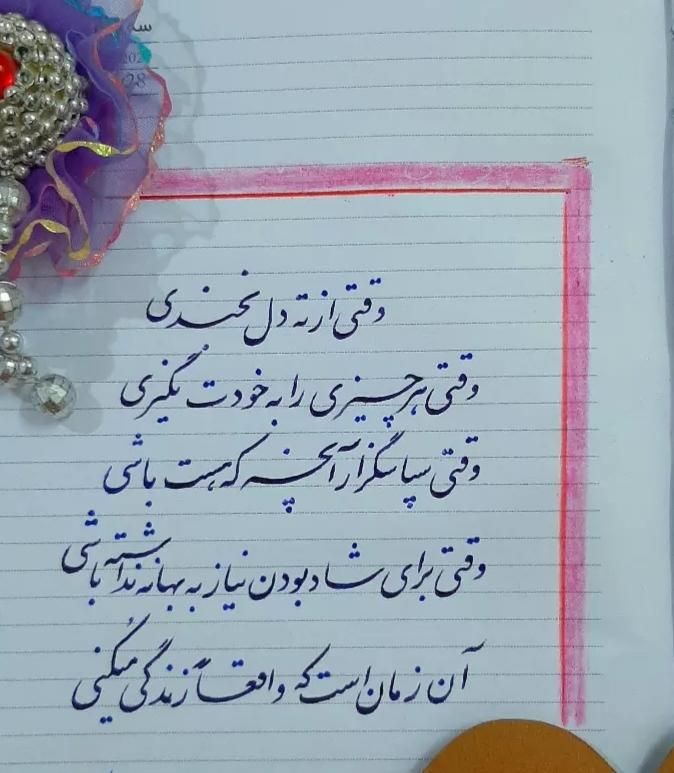 وقتی از ته دل بخندی
وقتی هر چیزی را به خودت نگیری
وقتی سپاسگزار آنچه که هست باشی
وقتی برای شاد بودن نیاز به بهانه نداشته باشی
آن زمان است که واقعاً زندگی میکنی